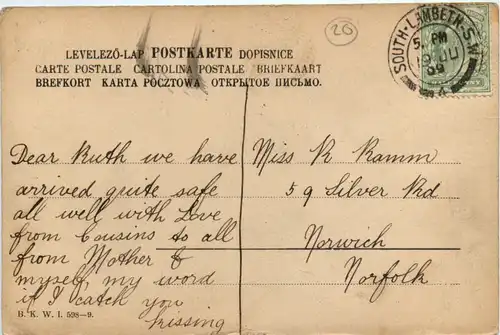 20
SOUTH-LAMBETH. S.W.
5. PM
JU
09
4
LEVELEZŐ-LAP POSTKARTE DOPISNICE
CARTE POSTALE CARTOLINA POSTALE BRIEFKAART
BREFKORT KARTA POCZTOWA ОТКРЫТОЕ ПИСЬМО.
Dear Ruth we have
arrived quite safe
all well with Love
from Cousins to all
from Mother &
myself, my word
if I catch you
kissing
Miss R Kamm
59 Silver Rd
Norwich
Norfolk
B. K. W. I. 598-9.